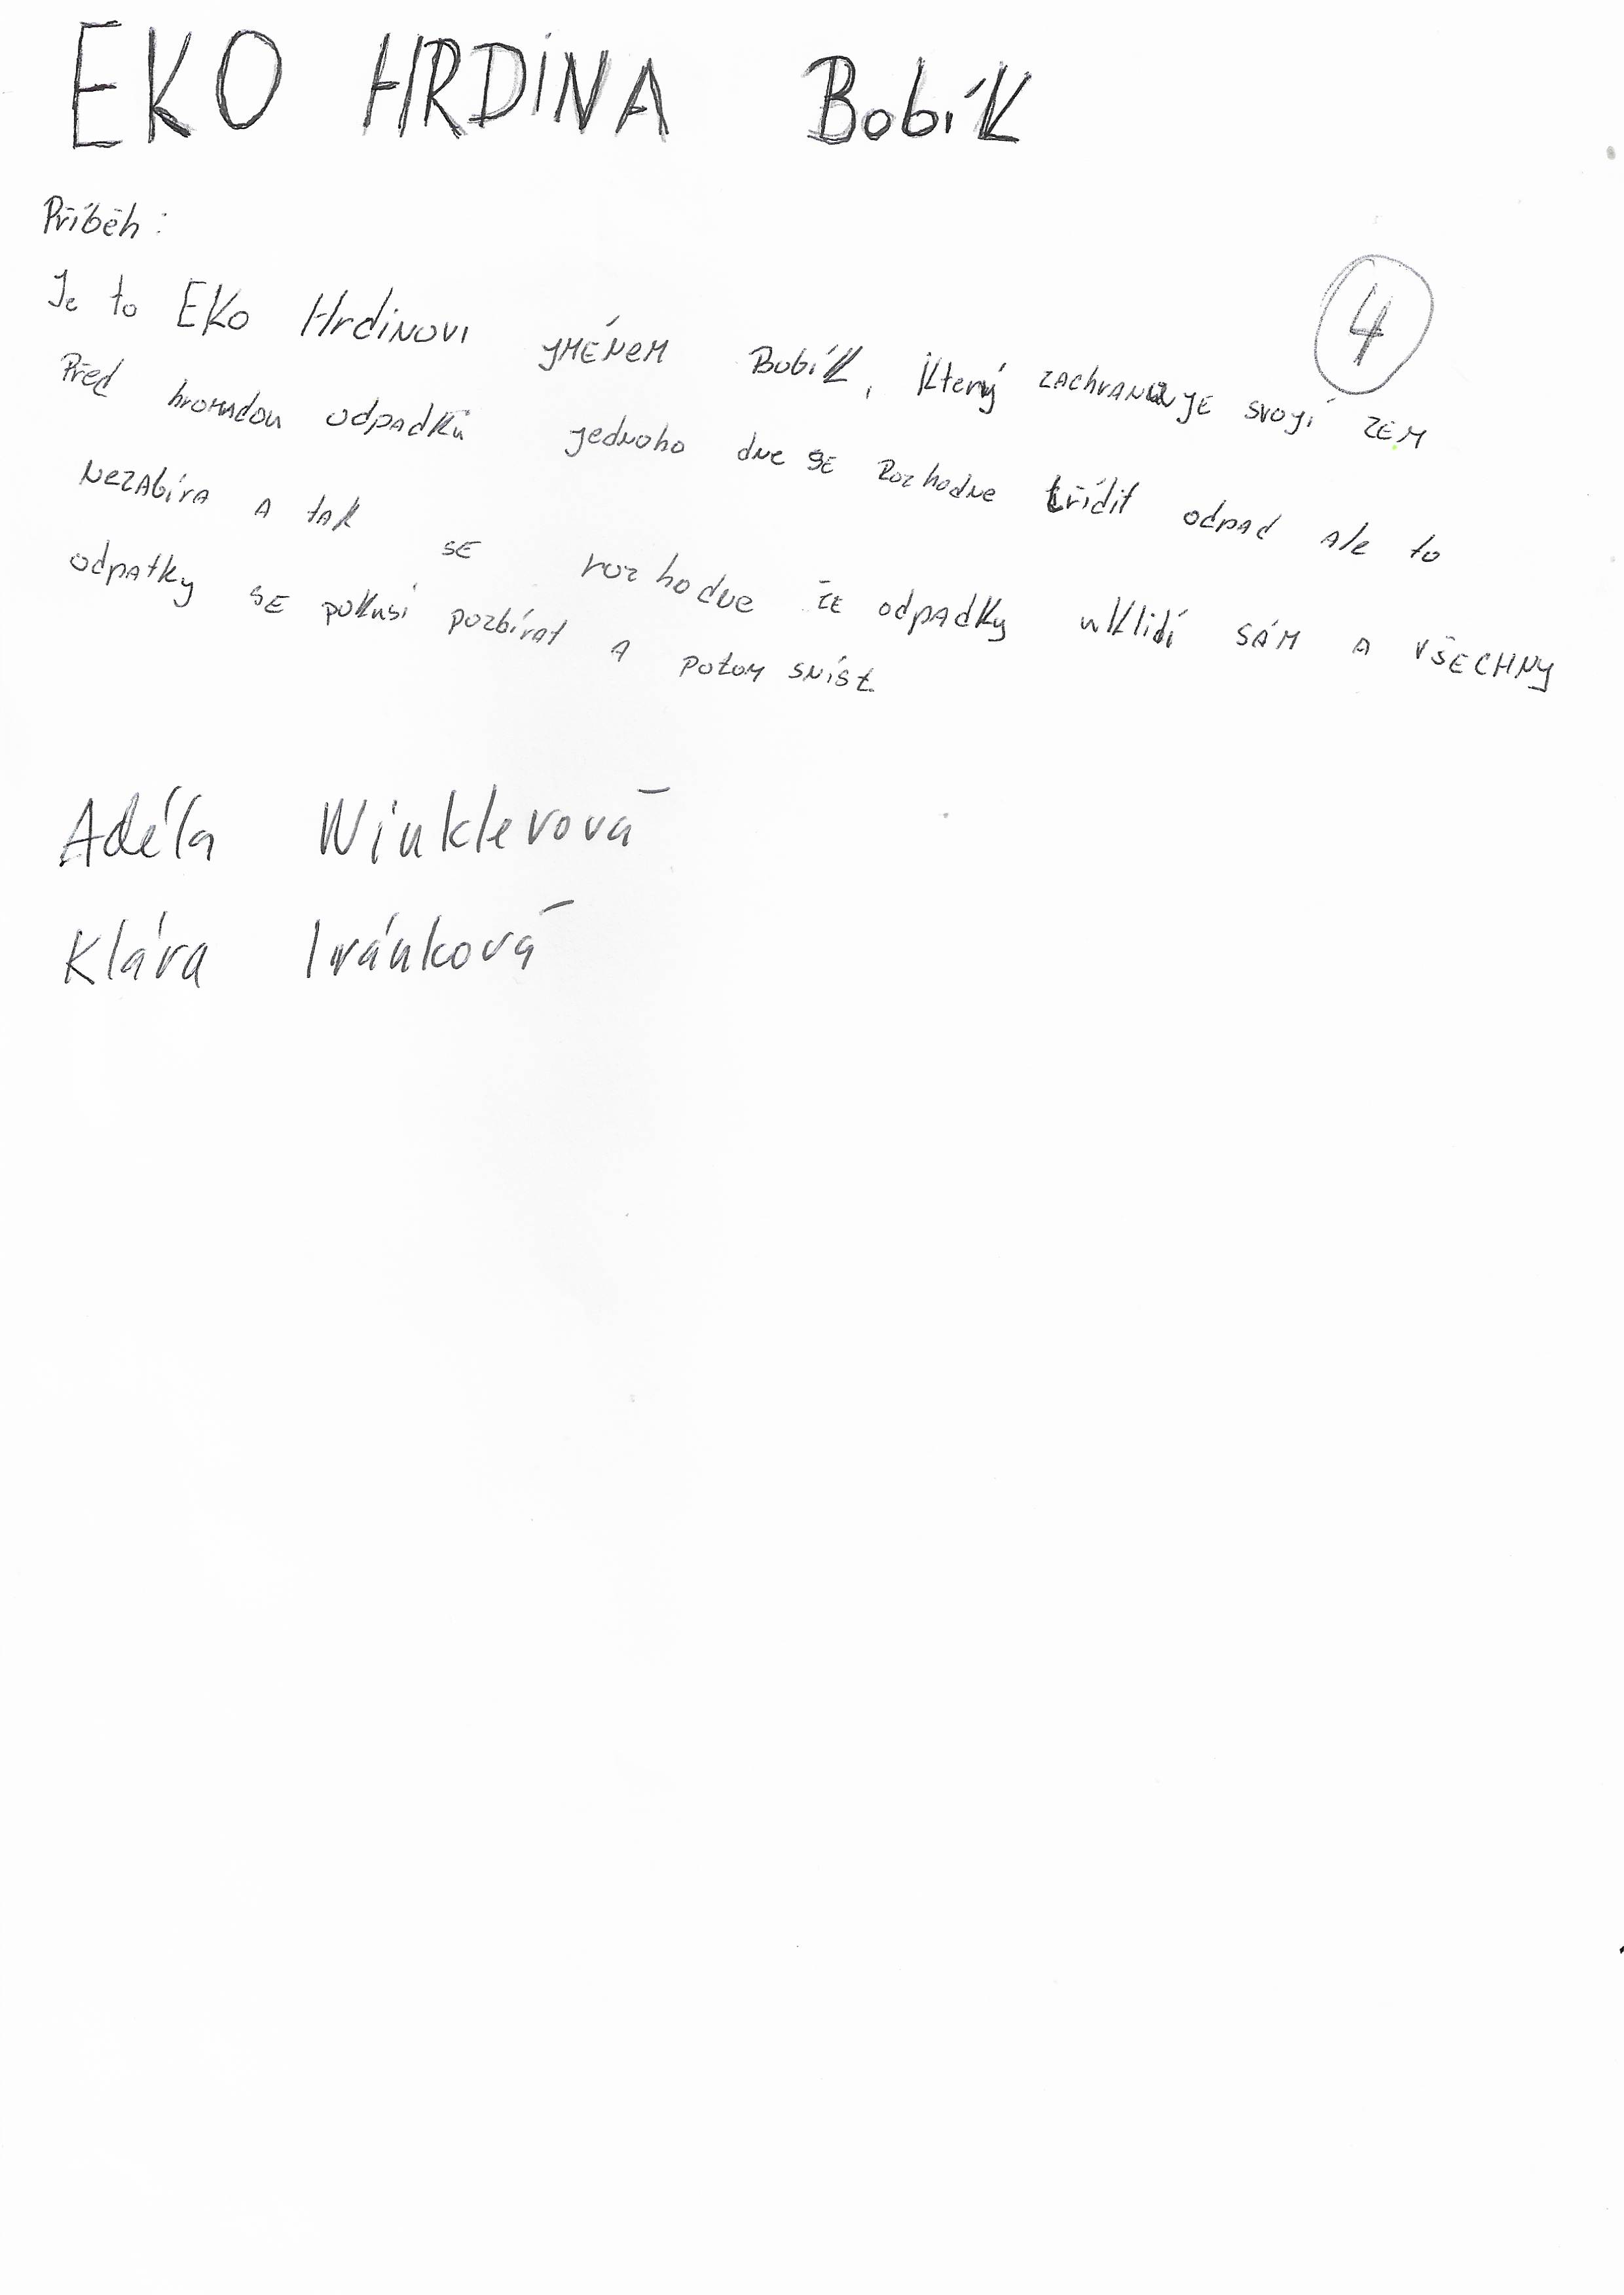 EKO HRDINA Bobík
Příběh:
4
Je to EKo Hrdinovi jménem Bobík, který zachranuje svojí zem
Před hromadou odpadků jednoho dne se rozhodne třídit odpad ale to
nezabíra a tak se rozhodne že odpadky uklidí sám a všechny
odpatky se pokusí pozbírat a potom sníst
Adéla Winklerová
Klára Ivánková